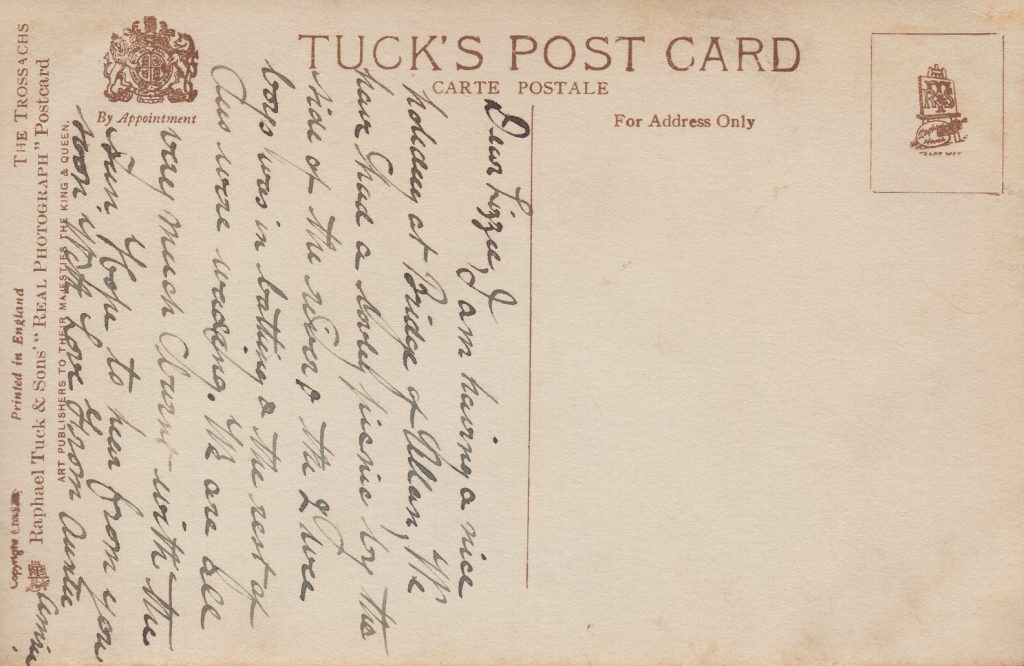 TUCK'S POST CARD
CARTE POSTALE
By Appointment
For Address Only
THE TROSSACHS
Raphael Tuck & Sons' "REAL PHOTOGRAPH" Postcard
Printed in England
ART PUBLISHERS TO THEIR MAJESTIES THE KING & QUEEN.
Copyright
Dear Lizzie, I am having a nice
holiday at Bridge of Allan, We
have had a lovely picnic by the
side of the river & the 2 wee
boys was in bathing & the rest of
us were wading. We are all
very much burnt with the
Sun Hope to hear from you
soon with Love from Auntie